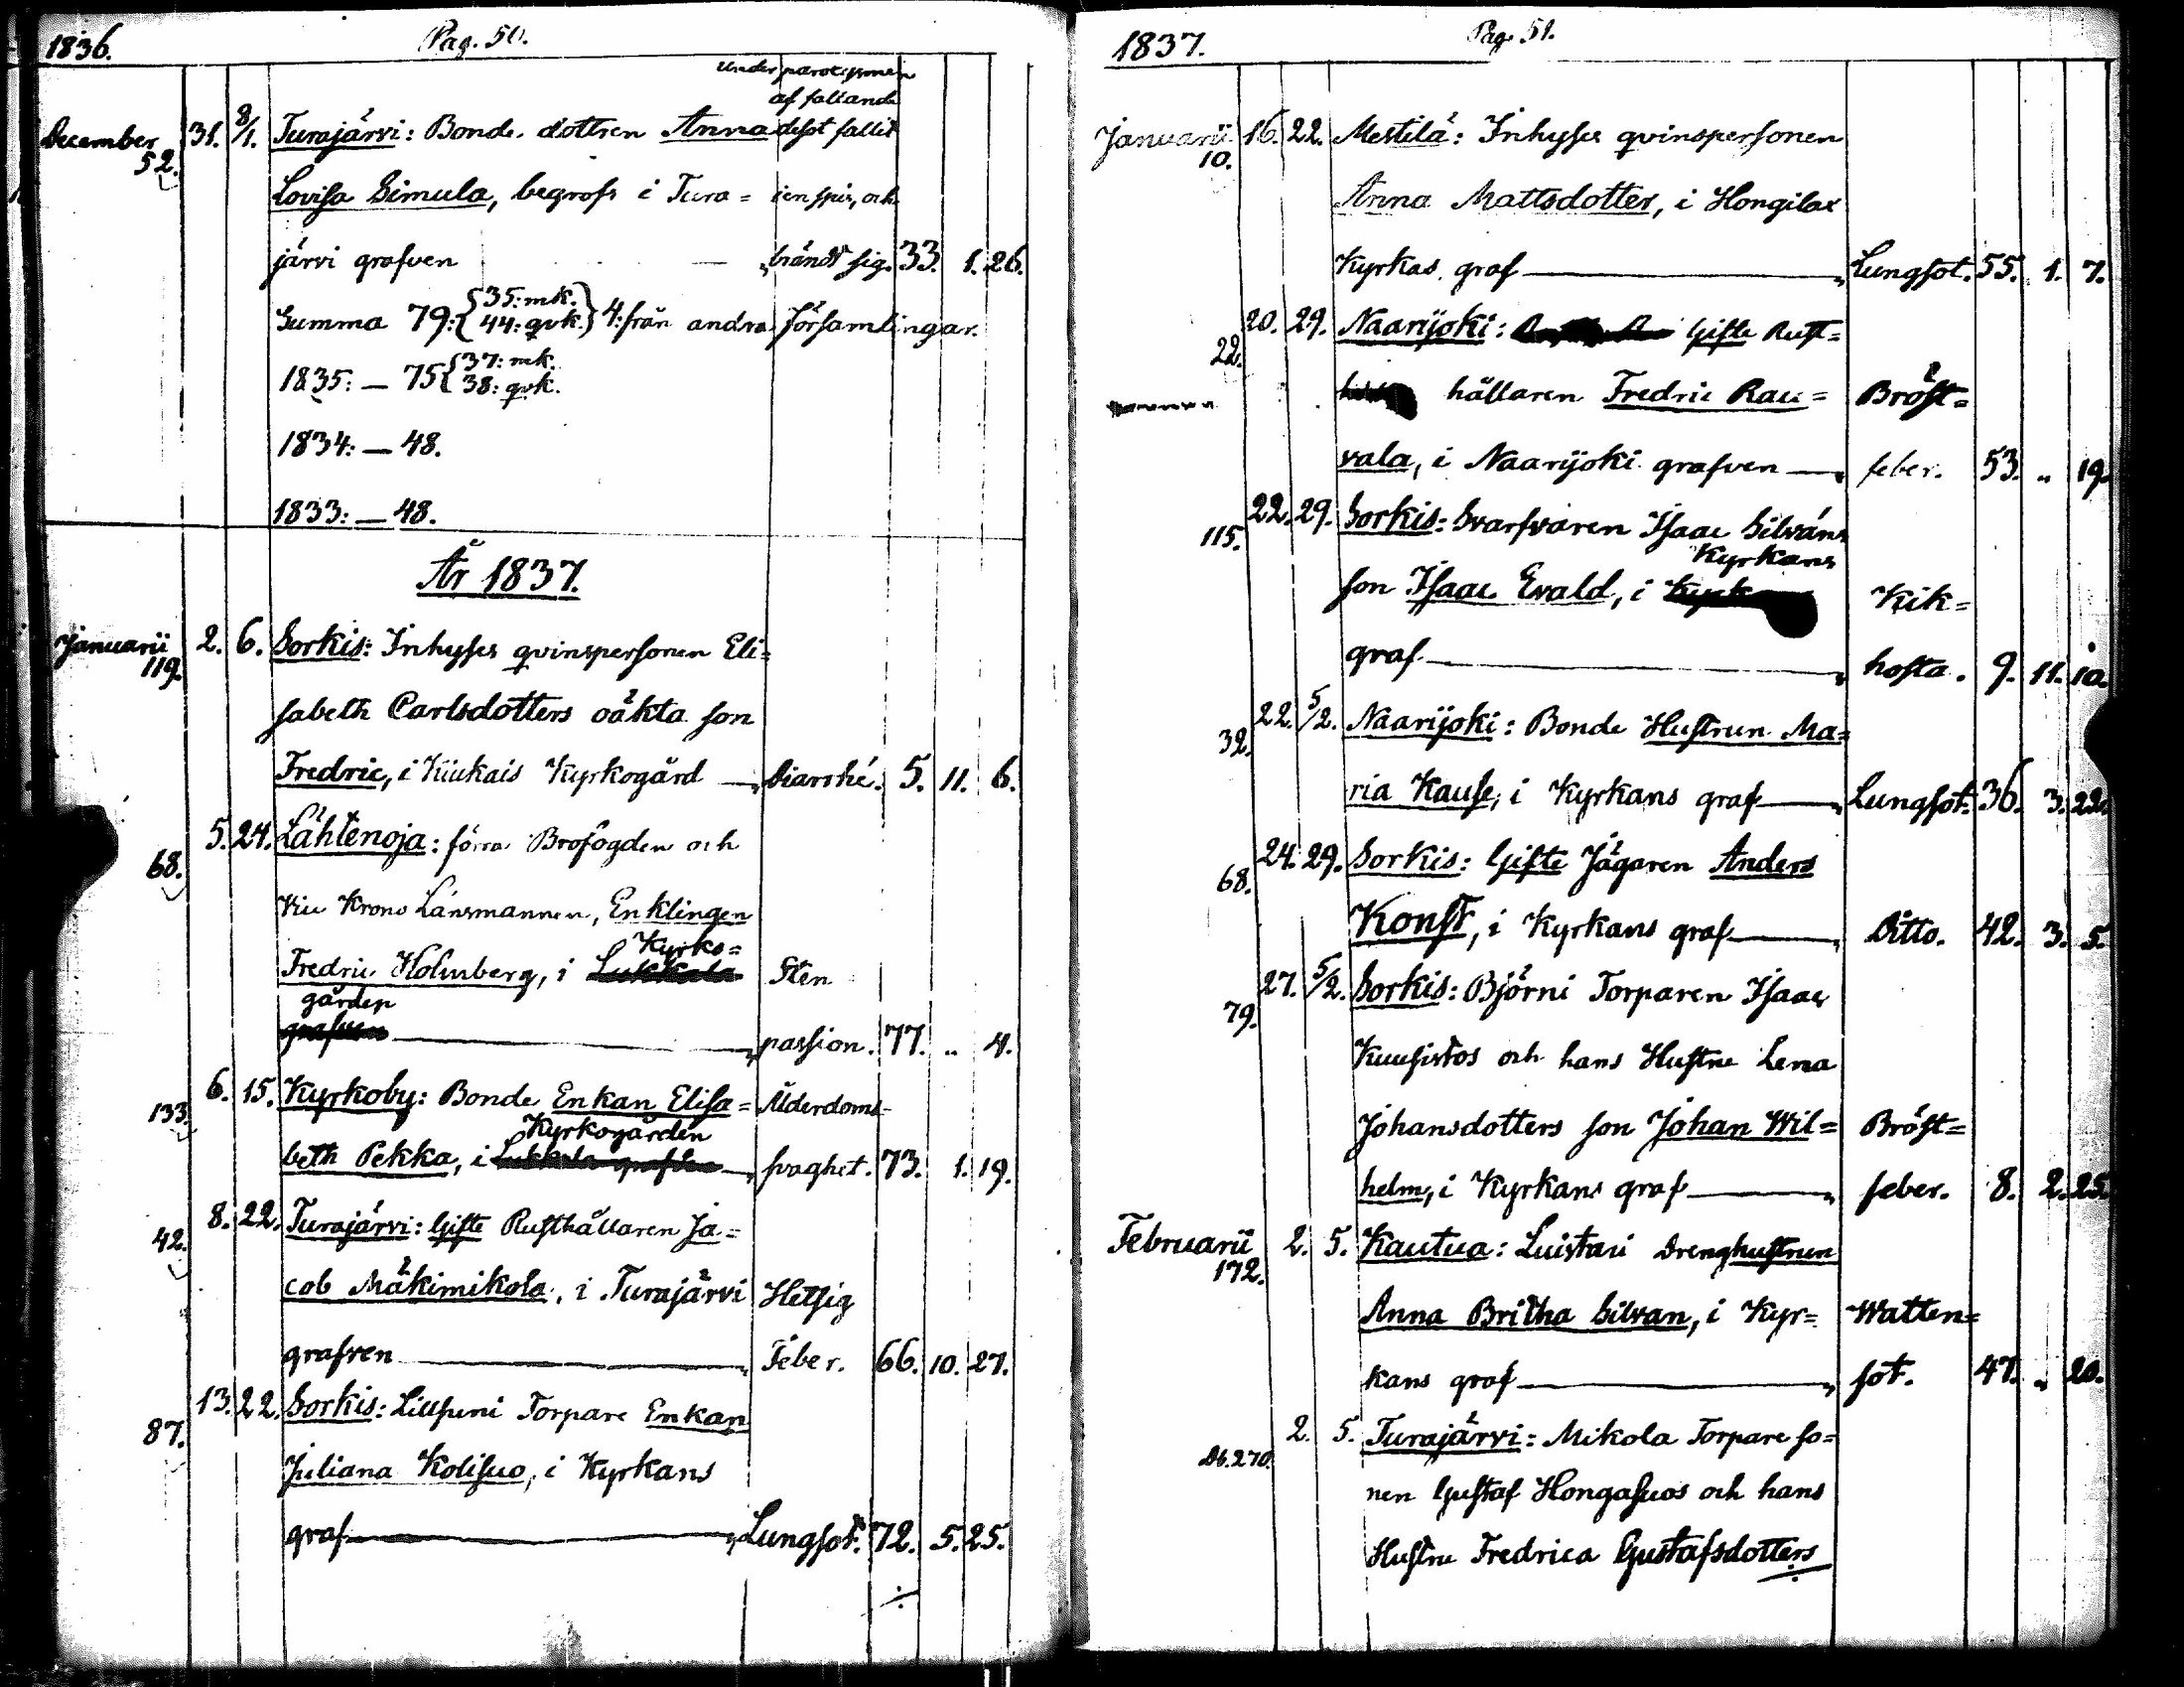 1836.
Pag. 50.
under paroxysmen
af fallande
December 31. 8/1. Turajärvi: Bonde dottren Anna desot fallit
52.
Lovisa Simula, begrofs i Tura= i en spis, och
järvi grafven — „ brändt sig. 33. 1. 26.
Summa 79: {35: mk. 44: qvk.} 4: från andra församlingar.
1835: — 75 {37: mk. 38: qvk.
1834: — 48.
1833: — 48.
År 1837.
Januarii 2. 6. Sorkis: Inhyses qvinspersonen Eli=
119.
sabeth Carlsdotters oäkta son
Fredric, i Kiukais Kyrkogård — „ Diarrhé. 5. 11. 6.
5. 24. Lähtenoja: förra Brofogden och
68.
Vice Krono Länsmannen, Enklingen
Kyrko=
Fredric Holmberg, i Lukkala Sten
gården
grafven — „ passion. 77. „ 4.
6. 15. Kyrkoby: Bonde Enkan Elisa= Ålderdoms-
133.
Kyrkogården
beth Pekka, i Lukkala grafven — „ svaghet. 73. 1. 19.
8. 22. Turajärvi: Gifte Rusthållaren Ja=
42.
cob Mäkimikola, i Turajärvi Hetsig
grafven — „ Feber. 66. 10. 27.
13. 22. Sorkis: Lillsuni Torpare Enkan
87.
Juliana Kolisuo, i Kyrkans
graf — „ Lungsot. 72. 5. 25.
1837.
Pag. 51.
Januarii 16. 22. Mestilä: Inhyses qvinspersonen
10.
Anna Mattsdotter, i Hongilax
Kyrkas graf — „ Lungsot. 55. 1. 7.
20. 29. Naarijoki: Gifte Rust=
22.
hållaren Fredric Rau= Bröst=
vala, i Naarijoki grafven — „ feber. 53. „ 19.
22. 29. Sorkis: Svarfvaren Isaac Silváns
115.
Kyrkans
son Isaac Evald, i Kyrk Kik=
graf — „ hosta. 9. 11. 10.
22. 5/2. Naarijoki: Bonde Hustrun Ma=
32.
ria Kause, i Kyrkans graf — „ Lungsot. 36. 3. 22.
24. 29. Sorkis: Gifte Jägaren Anders
68.
Konst, i Kyrkans graf — „ Ditto. 42. 3. 5.
27. 5/2. Sorkis: Björni Torparen Isaac
79.
Kuusistos och hans Hustru Lena
Johansdotters son Johan Wil= Bröst=
helm, i Kyrkans graf — „ feber. 8. 2. 25.
Februarii 2. 5. Kautua: Luistari Drenghustrun
172.
Anna Britha Silvan, i Kyr= Watten=
kans graf — „ sot. 47. „ 20.
2. 5. Turajärvi: Mikola Torpare so=
Db. 270.
nen Gustaf Hongasuos och hans
Hustru Fredrica Gustafsdotters